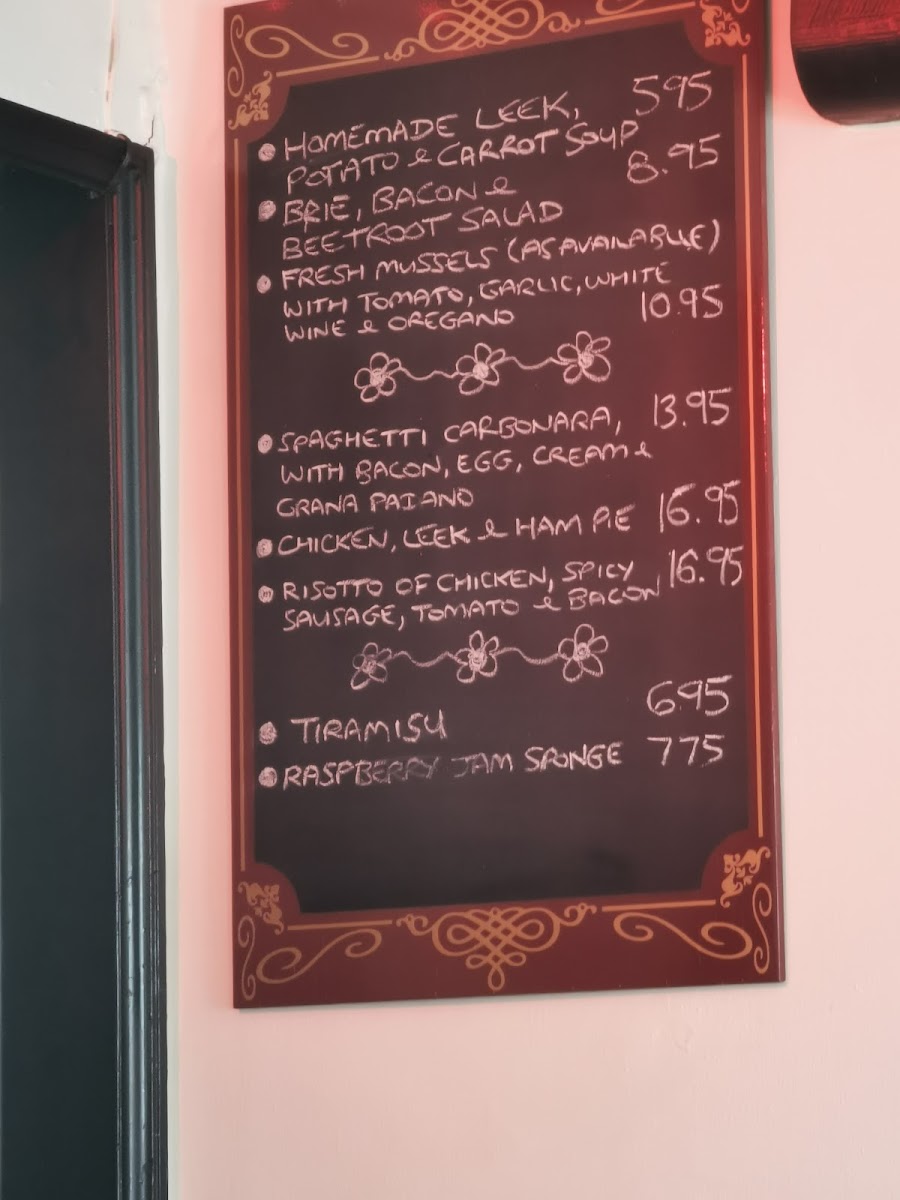 • HOMEMADE LEEK, 595
POTATO & CARROT SOUP
• BRIE, BACON & 8.95
BEETROOT SALAD
• FRESH MUSSELS (AS AVAILABLE)
WITH TOMATO, GARLIC, WHITE
WINE & OREGANO 10.95
• SPAGHETTI CARBONARA, 13.95
WITH BACON, EGG, CREAM &
GRANA PADANO
• CHICKEN, LEEK & HAM PIE 16.95
• RISOTTO OF CHICKEN, SPICY 16.95
SAUSAGE, TOMATO & BACON
• TIRAMISU 695
• RASPBERRY JAM SPONGE 775